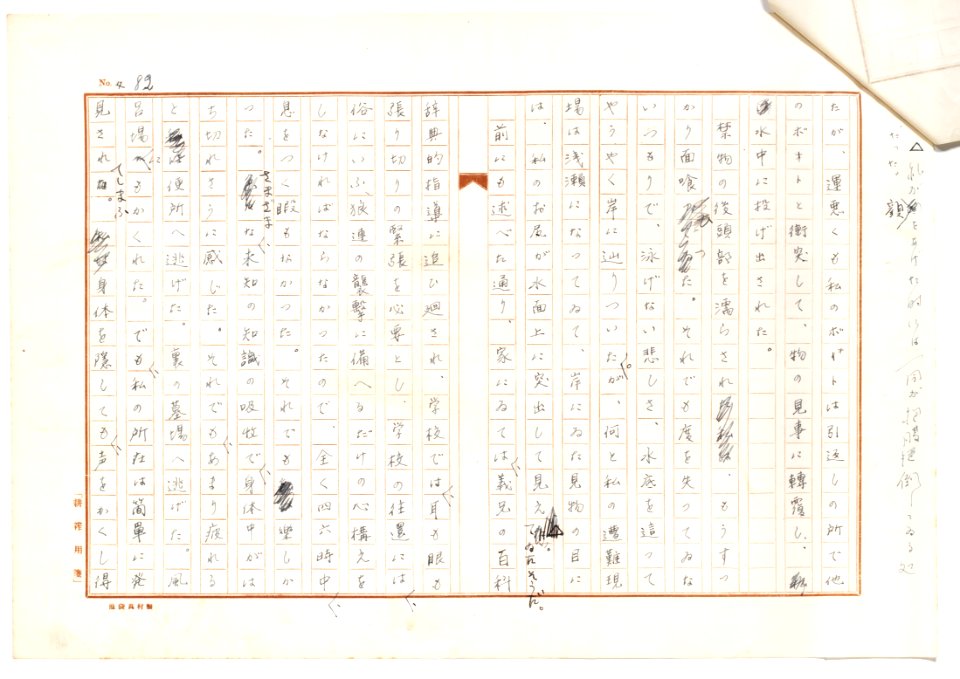 No. 82
たが、運悪くも私のボートは引返しの所で他
のボートと衝突して、物の見事に轉覆し、
水中に投げ出された。
禁物の後頭部を濡らされ、もうすつ
かり面喰つた。それでも度を失つてゐな
いつもりで、泳げない悲しさ、水底を這つて
やうやく岸に辿りついたが、何と私の遭難現
場は浅瀬になつてゐて、岸にゐた見物の目に
は、私のお尻が水面上に突出して見え
前にも述べた通り、家にゐては義兄の百科
辞典的指導に追ひ廻され、学校では耳も眼も
張り切りの緊張を必要とし、学校の往還には
俗にいふ、狼連の襲撃に備へるだけの心構えを
しなければならなかつたので、全く四六時中
息をつく暇もなかつた。それでも楽しか
つた。さまざまな未知の知識の吸收で身体中がは
ち切れさうに感じた。それでもあまり疲れる
と便所へ逃げた。裏の墓場へ逃げた。風
呂場にもかくれた。でも私の所在は簡單に発
見されてしまふ。身体を隠しても声をかくし得